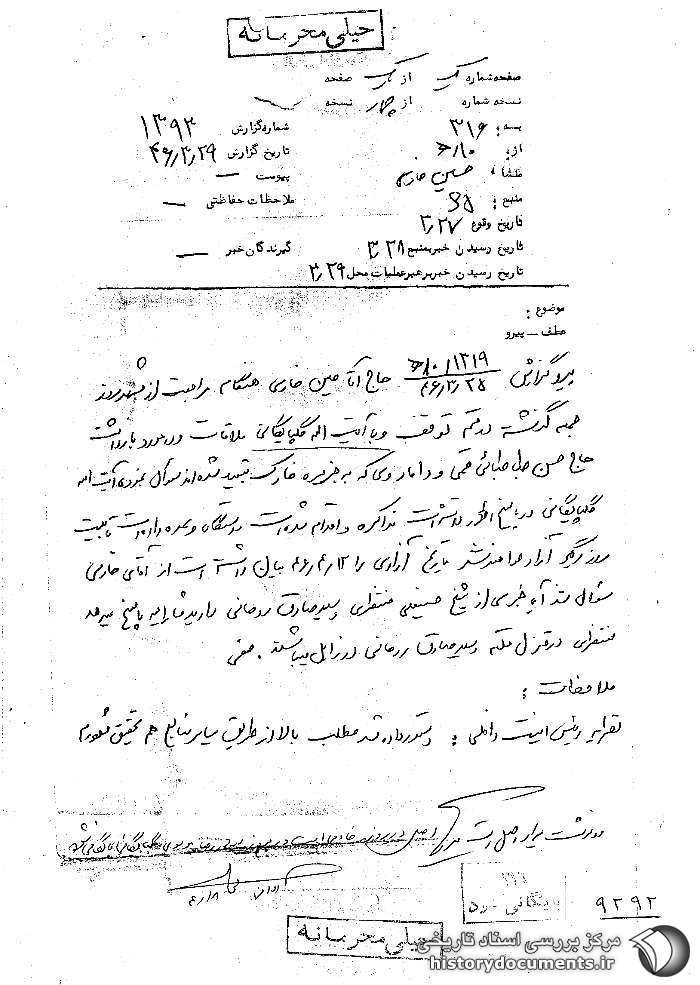 خیلی محرمانه
صفحه شماره یک از یک صفحه
نسخه شماره از چهار نسخه
بسه: ۳۱۶ شماره گزارش ۱۳۹۲
از: ۱۰ تاریخ گزارش ۴۶/۳/۲۹
پیوست —
منبع: ملاحظات حفاظتی —
تاریخ وقوع ۳٫۲۷
تاریخ رسیدن خبر بمنبع ۳٫۲۸ گیرندگان خبر —
تاریخ رسیدن خبر برهبر عملیات محل ۳٫۲۹
موضوع:
عطف – پیرو
پیرو گزارش ۱۲۱۹/۱۰ ۴۶/۳/۲۵ حاج آقا حسین هنگام مراجعت از مشهد روز
جمعه گذشته در قم توقف و با آیت اله گلپایگانی ملاقات و در مورد بازداشت
حاج حسن طباطبائی قمی و داماد وی که به جزیره خارک تبعید شده‌اند سوال نموده آیت اله
گلپایگانی در پاسخ اظهار داشته است مذاکره و اقدام شده است دستگاه وعده داده است تا بیست
روز دیگر آزاد خواهند شد تاریخ آزادی را ۴۶/۴/۱۲ بیان داشته است از آقای
سوال شد آیا خبری از شیخ حسینعلی منتظری و سید صادق روحانی دارید پاسخ میدهد
منتظری در قزل قلعه و سید صادق روحانی در زابل میباشند.
ملاحظات:
نظریه رئیس امنیت داخلی: دستور داده شد مطلب بالا از طریق سایر منابع هم تحقیق
رونوشت برابر اصل است
اصل در پرونده
بایگانی شود
۹۲۹۲
خیلی محرمانه
مرکز بررسی اسناد تاریخی
historydocuments.ir